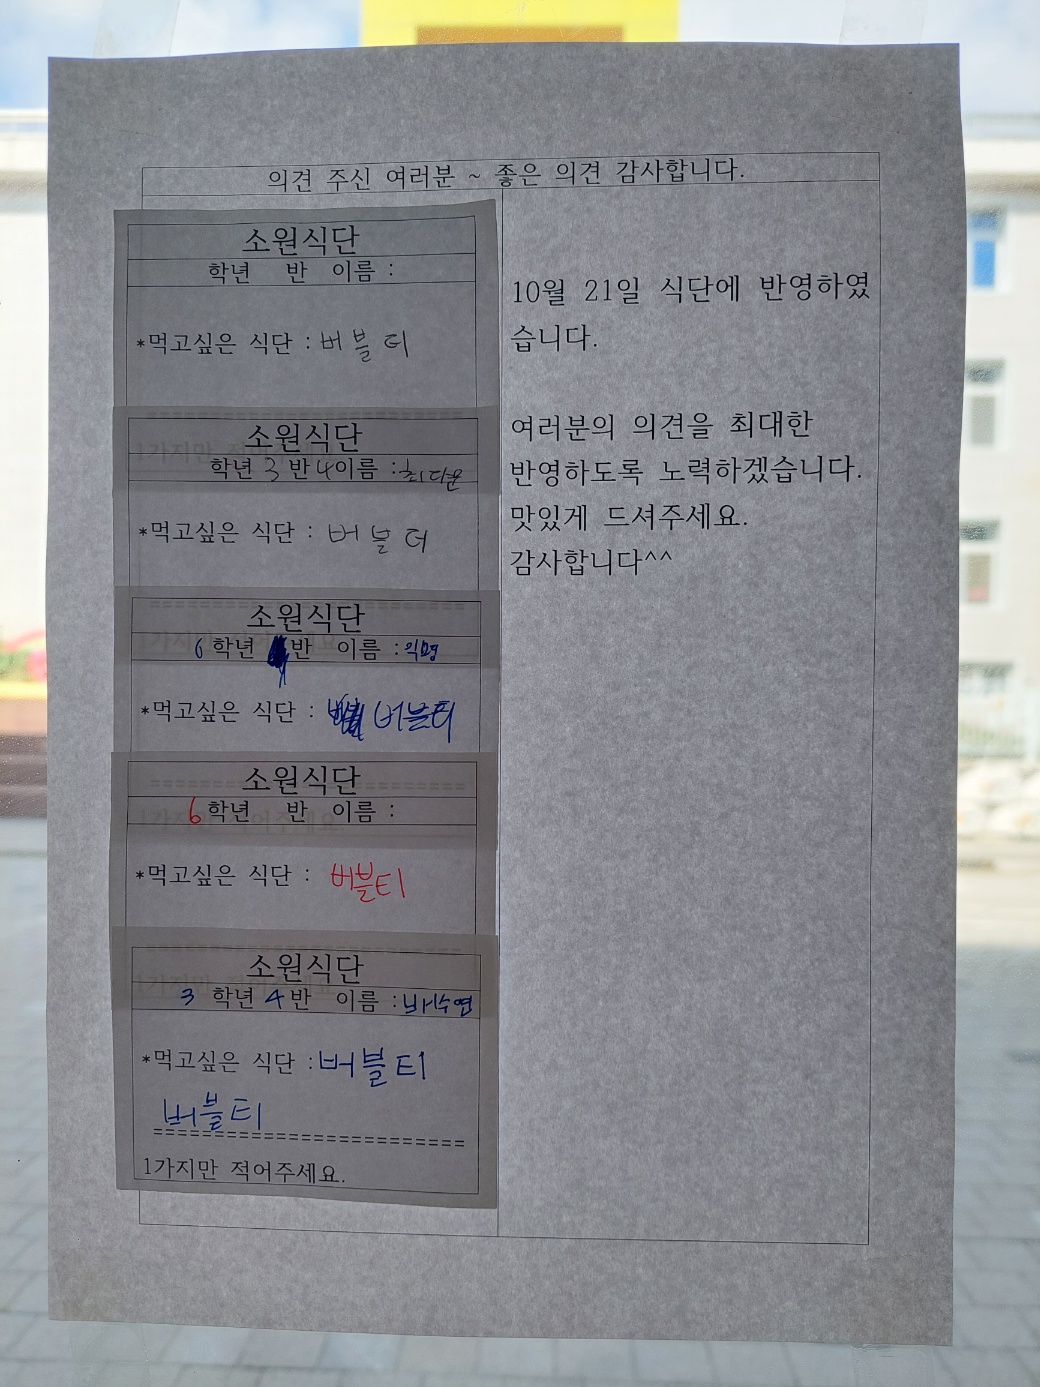 의견 주신 여러분 ~ 좋은 의견 감사합니다.
소원식단
학년 반 이름 :
*먹고싶은 식단 : 버블티
소원식단
학년 3 반 4 이름 : 최다운
*먹고싶은 식단 : 버블티
소원식단
6 학년 반 이름 : 익명
*먹고싶은 식단 : 버블티
소원식단
6 학년 반 이름 :
*먹고싶은 식단 : 버블티
소원식단
3 학년 4 반 이름 : 배수연
*먹고싶은 식단 : 버블티
버블티
=======================
1가지만 적어주세요.
10월 21일 식단에 반영하였
습니다.
여러분의 의견을 최대한
반영하도록 노력하겠습니다.
맛있게 드셔주세요.
감사합니다^^